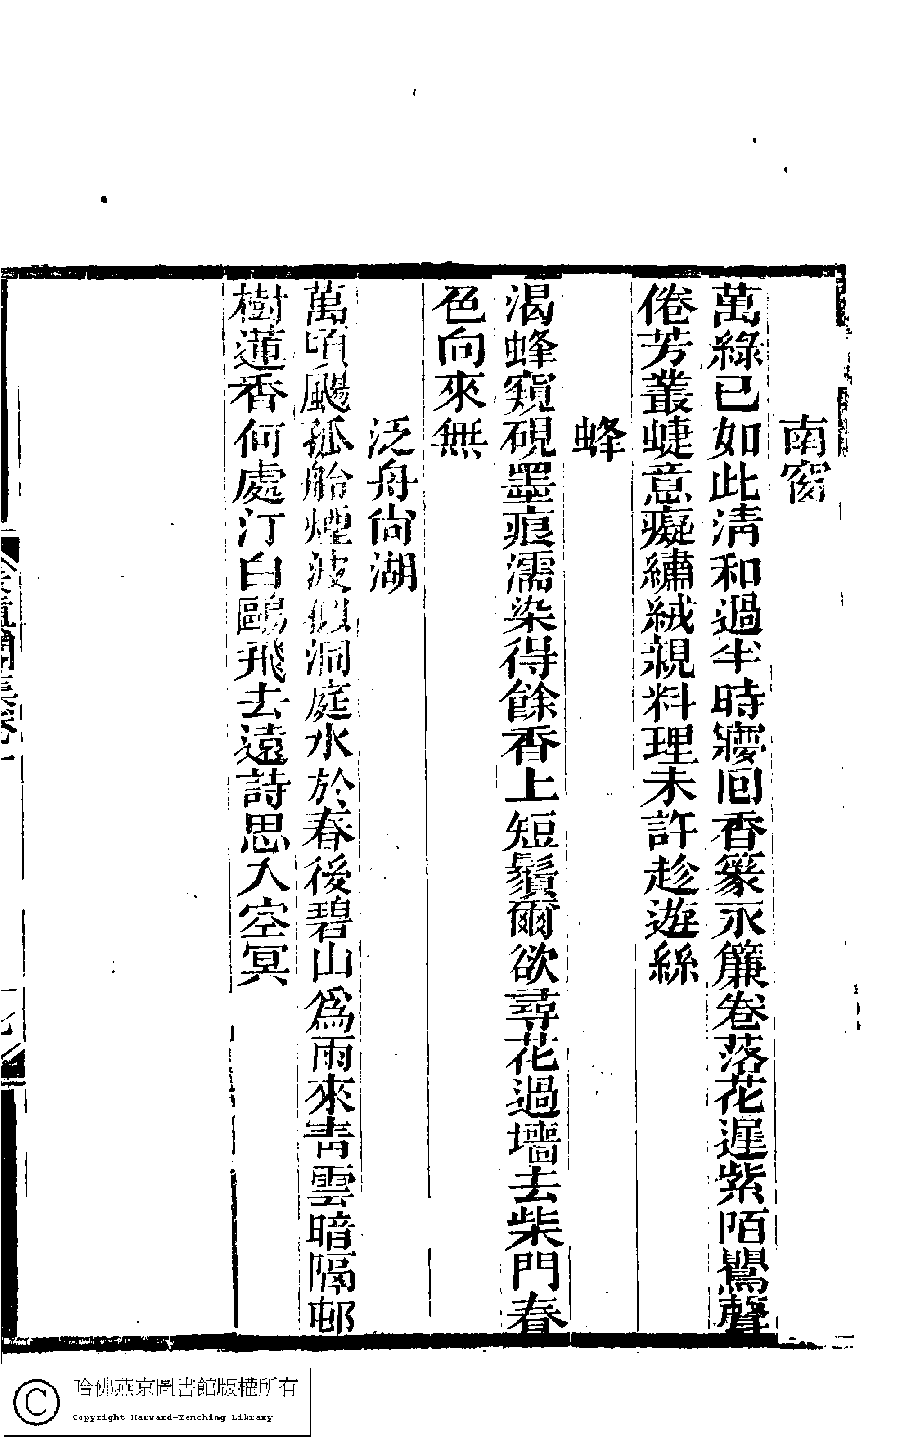 南窗
萬綠已如此淸和過半時夣囘香篆永簾卷落花遲紫陌鶯聲
倦芳叢蜨意癡繡絨親料理未許趁遊絲
蜂
渴蜂窺硯墨痕濡染得餘香上短鬚爾欲尋花過墻去柴門春
色向來無
泛舟尙湖
萬頃颺孤舲煙波似洞庭水於春後碧山爲雨來靑雲暗隔邨
樹蓮香何處汀白鷗飛去遠詩思入空冥
哈佛燕京圖書館版權所有
Copyright Harvard-Yenching Library